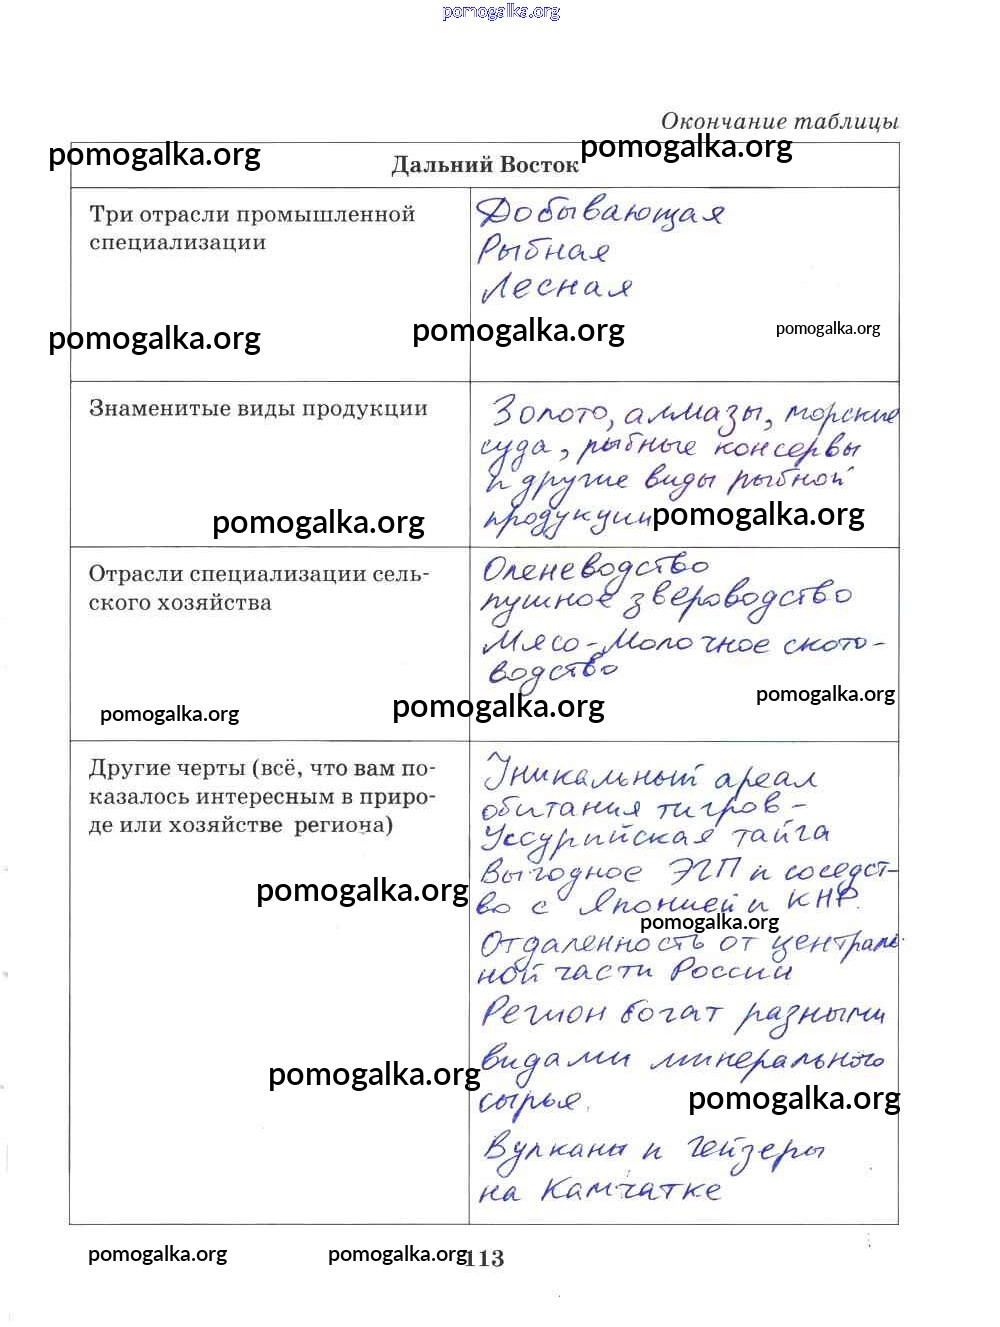 pomogalka.org
Окончание таблицы
pomogalka.org
pomogalka.org
Дальний Восток
Три отрасли промышленной
специализации
Добывающая
Рыбная
Лесная
pomogalka.org
pomogalka.org
pomogalka.org
Знаменитые виды продукции
Золото, алмазы, морские
суда, рыбные консервы
и другие виды рыбной
продукции
pomogalka.org
pomogalka.org
Отрасли специализации сель-
ского хозяйства
Оленеводство
пушное звероводство
Мясо-молочное ското-
водство
pomogalka.org
pomogalka.org
pomogalka.org
Другие черты (всё, что вам по-
казалось интересным в приро-
де или хозяйстве региона)
Уникальный ареал
обитания тигров -
Уссурийская тайга
Выгодное ЭГП и соседст-
во с Японией и КНР.
pomogalka.org
pomogalka.org
Отдаленность от централь-
ной части России
Регион богат разными
видами минерального
сырья.
pomogalka.org
pomogalka.org
Вулканы и гейзеры
на Камчатке
pomogalka.org
pomogalka.org
113